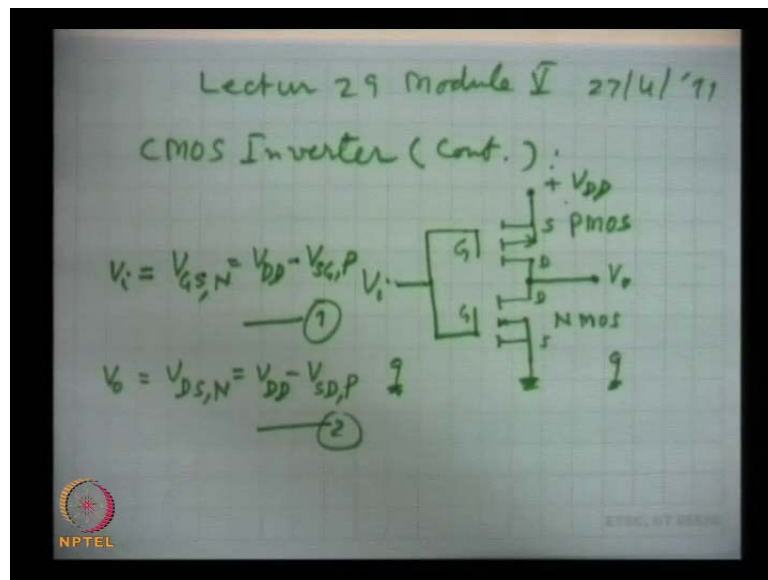 Lectur 29 Module V 27/4/'11
CMOS Inverter (Cont.):
+ VDD
S PMOS
G
D
Vi = VGS,N = VDD - VSG,P
①
Vi
Vo
D
G
NMOS
S
Vo = VDS,N = VDD - VSD,P
②
NPTEL